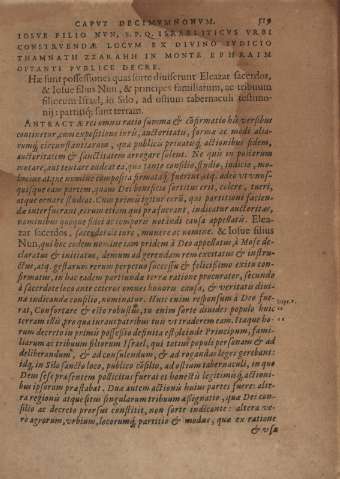 CAPVT DECIMVMNONVM. 519
IOSVE FILIO NVN, S.P.Q. ISRAELITICVS VRBI
CONSTRVENDÆ LOCVM EX DIVINO IVDICIO
THAMNATH TZARAHH IN MONTE EPHRAIM
OPTANTI PVBLICE DECRE.
Hæ sunt possessiones quas sorte diuiserunt Eleazar sacerdos,
& Iosue filius Nun, & principes familiarum, ac tribuum
filiorum Israel, in Silo, ad ostium tabernaculi testimo-
nij: partitiq; sunt terram.
ANTE ACTÆ rei omnis ratio summa & cõfirmatio his versibus
continetur, cum expositione iuris, auctoritatis, formæ ac modi alia-
rumq; circunstantiarum, quæ publicis priuatisq; actionibus fidem,
auctoritatem & sanctitatem arrogare solent. Ne quis in posterum
mutare, aut tentare audeat ea, quæ tanto consilio, studio, iudicio, ma-
ximi atque numine composita firmataq; fuerint atq; adeo vt vnus-
quisque eam partem, quam Dei beneficio sortitus erit, colere, tueri,
atque ornare studeat. Cum primis igitur certò, quæ partitioni facien-
dæ interfuerant, eorum etiam qui præfuerant, indicatur auctoritas,
nominibus quoque ad eos certos notandi causa appellatis. Elea-
zar sacerdos, sacerdotali iure, munere ac nomine. & Iosue filius
Nun, qui hoc eodem nomine iam pridem à Deo appellatus, à Mose de-
claratus & initiatus, demum ad gerendam rem excitatus & instru-
ctus, atq; gestarum rerum perpetuo successu & felicissimo exitu con-
firmatus, in hac eadem partiundæ terræ ratione procurator, secundo
à sacerdote loco ante ceteros omnes honoris causa, & veritatis diui-
næ indicandæ consilio, nominatur. Huic enim responsum à Deo fue-
rat, Confortare & esto robustus, tu enim sorte diuides populo huic
terram illã, pro qua iuraui patribus tuis vt traderem eam. Itaque ho-
rum decreto in primis possessio definita est, deinde Principum, fami-
liarum ac tribuum filiorum Israel, qui totius populi personam & ad
deliberandum, & ad consulendum, & ad rogandas leges gerebant:
idq; in Silo sancto loco, publico cõsilio, ad ostium tabernaculi, in quo
Deus sese præsentem pollicitus fuerat ei honestis legitimisq; actioni-
bus ipsorum præstabat. Duæ autem actionis huius partes fuere: alte-
ra regionis atque situs singularum tribuum assignatio, quæ Dei con-
silio ac decreto prorsus constitit, non sorte indicante: altera ve-
rò agrorum, vrbium, locorumq; partitio & modus, quæ ex ratione
& vsu